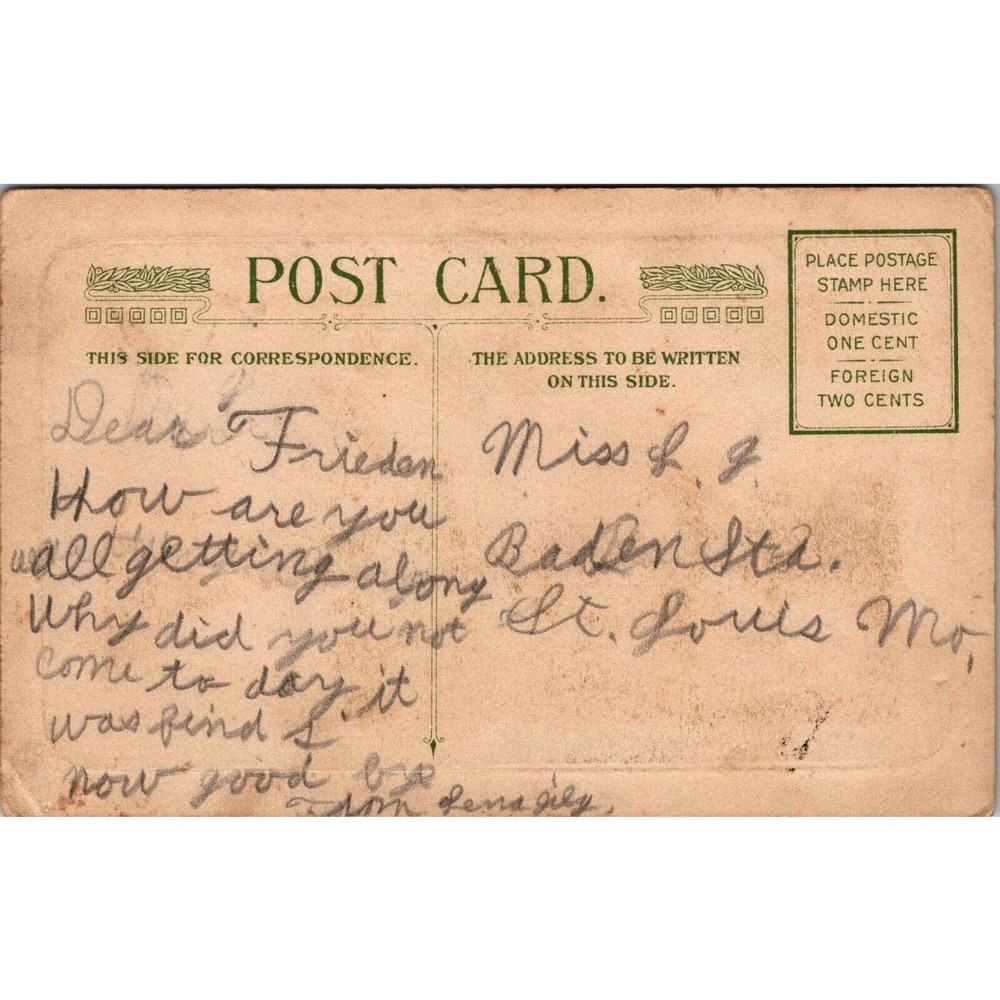 POST CARD.
PLACE POSTAGE
STAMP HERE
DOMESTIC
ONE CENT
FOREIGN
TWO CENTS
THIS SIDE FOR CORRESPONDENCE.
THE ADDRESS TO BE WRITTEN
ON THIS SIDE.
Dear
Frieden
How are you
all getting along
Why did you not
come to day it
was find
now good by
Lena
Miss L. G.
Baden Sta.
St. Louis Mo,